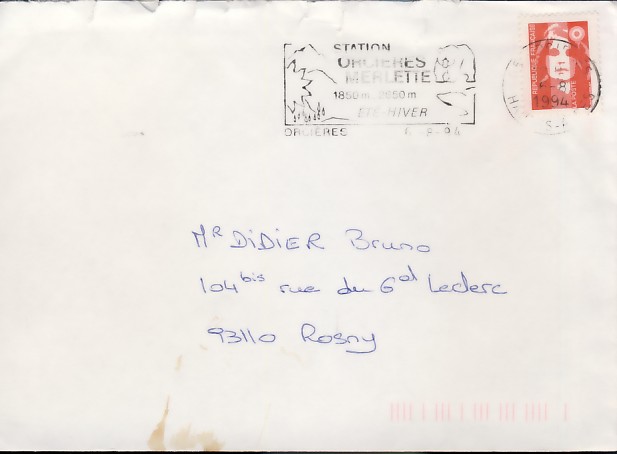 STATION
ORCIERES
MERLETTE
1850m 2650m
ETE-HIVER
ORCIERES 6-8-94
REPUBLIQUE FRANÇAISE
LA POSTE
1994
Mr DiDiER Bruno
104 bis rue du Gal Leclerc
93110 Rosny